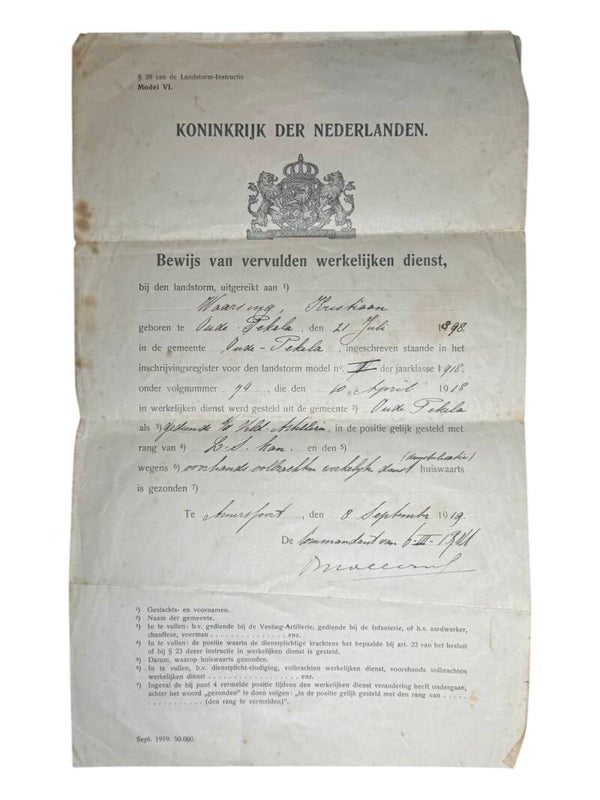 § 29 van de Landstorm-Instructie
Model VI.
KONINKRIJK DER NEDERLANDEN.
Bewijs van vervulden werkelijken dienst,
bij den landstorm, uitgereikt aan ¹)
Waarsing, Kristiaan
geboren te Oude-Pekela, den 21 Juli 1898.
in de gemeente Oude-Pekela, ingeschreven staande in het
inschrijvingsregister voor den landstorm model nº. II der jaarklasse 1918.
onder volgnummer 74, die den 10 April 1918
in werkelijken dienst werd gesteld uit de gemeente ²) Oude Pekela
als ³) gediende Veld-Artillerie, in de positie gelijk gesteld met
rang van ⁴) L.S. kan. en den ⁵)
(demobilisatie)
wegens ⁶) voorhands volbrachten werkelijken dienst huiswaarts
is gezonden ⁷)
Te Amersfoort, den 8 September 1919.
De Commandant van 6-III-
¹) Geslachts- en voornamen.
²) Naam der gemeente.
³) In te vullen: b.v. gediende bij de Vesting-Artillerie, gediende bij de Infanterie, of b.v. aardwerker,
chauffeur, voerman . . . . . . . . . . . . . . . enz.
⁴) In te vullen: de positie waarin de dienstplichtige krachtens het bepaalde bij art. 22 van het besluit
of bij § 23 dezer instructie in werkelijken dienst is gesteld.
⁵) Datum, waarop huiswaarts gezonden.
⁶) In te vullen, b.v. dienstplicht-eindiging, volbrachten werkelijken dienst, voorshands volbrachten
werkelijken dienst . . . . . . . . . . . . . . . enz.
⁷) Ingeval de bij punt 4 vermelde positie tijdens den werkelijken dienst verandering heeft ondergaan,
achter het woord „gezonden" te doen volgen: „in de positie gelijk gesteld met den rang van . . . . .
. . . . . . . . . . . (den rang te vermelden)".
Sept. 1919. 50.000.